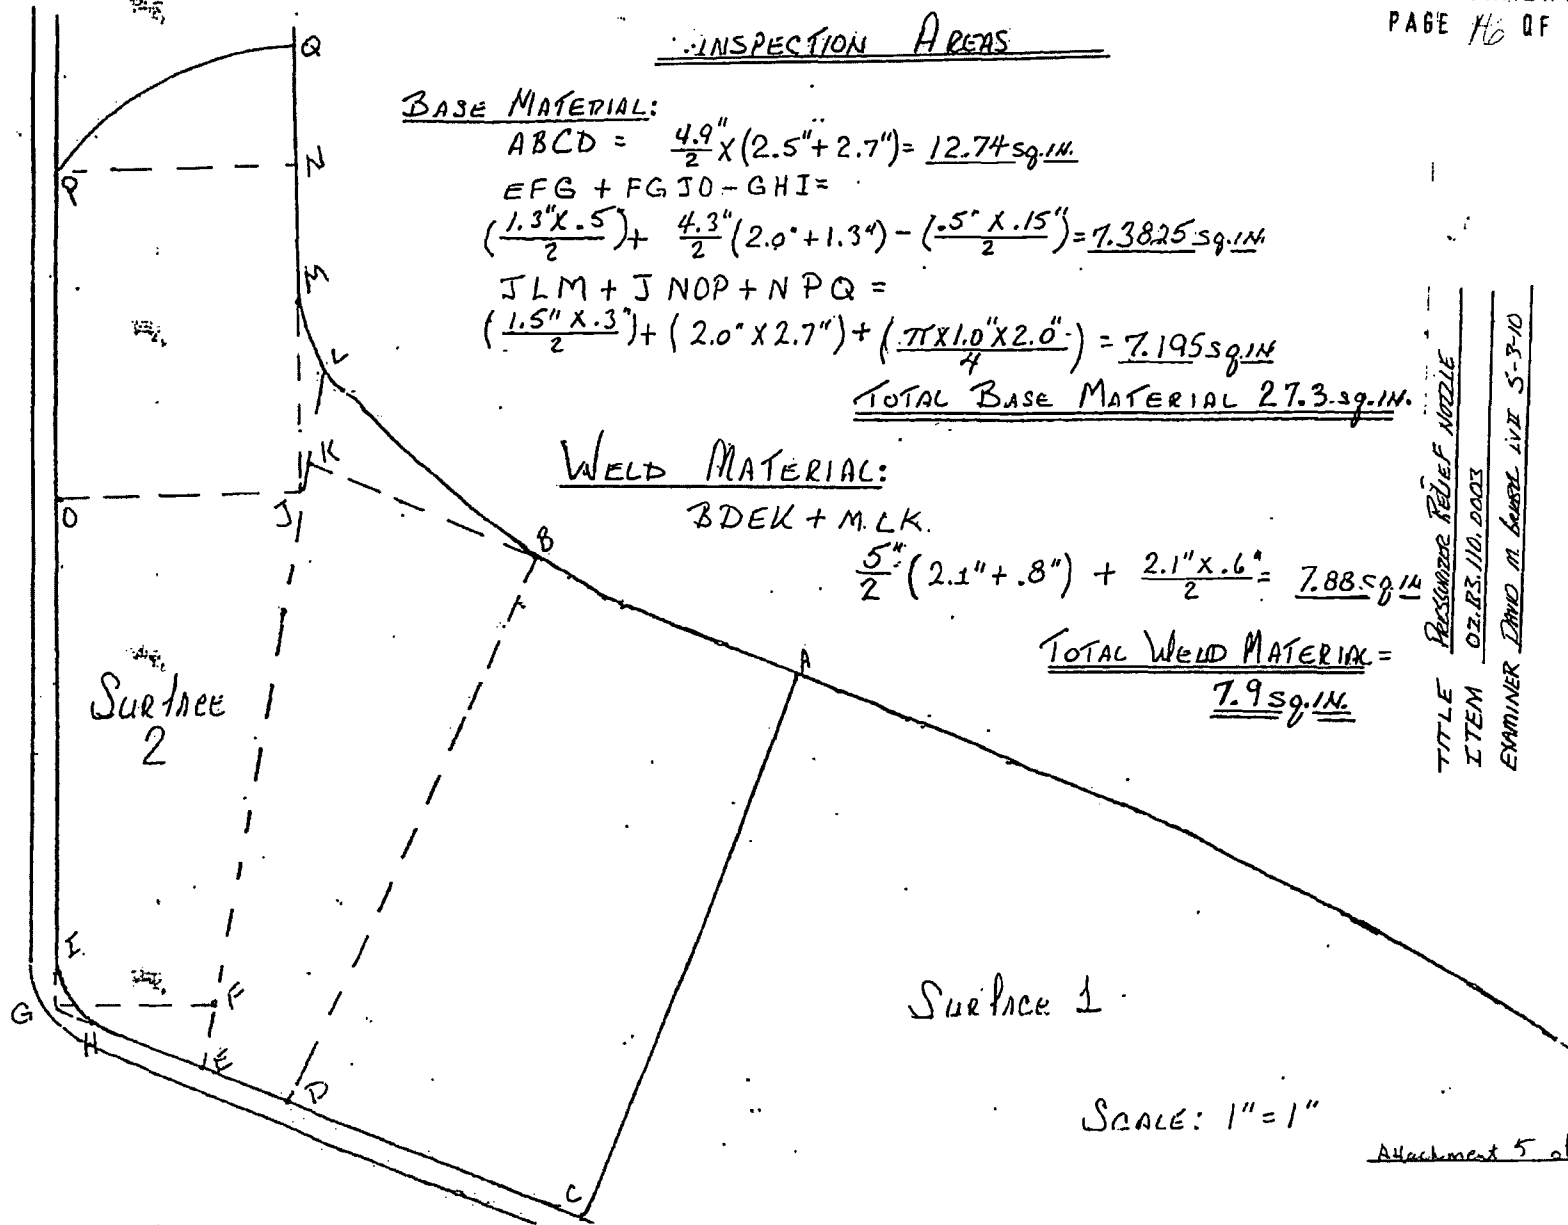 PAGE 16 OF
INSPECTION AREAS
BASE MATERIAL:
ABCD = 4.9"/2 X (2.5" + 2.7") = 12.74 sq.IN.
EFG + FGJO - GHI =
(1.3" X .5/2) + 4.3"/2 (2.0" + 1.3") - (.5" X .15"/2) = 7.3825 sq.IN.
JLM + JNOP + NPQ =
(1.5" X .3"/2) + (2.0" X 2.7") + (π X 1.0" X 2.0"/4) = 7.195 sq.IN
TOTAL BASE MATERIAL 27.3 sq.IN.
WELD MATERIAL:
BDEK + M.LK.
5"/2 (2.1" + .8") + 2.1" X .6"/2 = 7.88 sq IN
TOTAL WELD MATERIAL =
7.9 sq.IN.
Q
P
N
M
L
K
O
J
B
A
Surface
2
I
F
G
H
E
D
C
Surface 1
SCALE: 1" = 1"
Attachment 5 of
TITLE PRESSURIZER RELIEF NOZZLE
ITEM 02.B3.110.0003
EXAMINER DAVID M. LVII 5-3-10